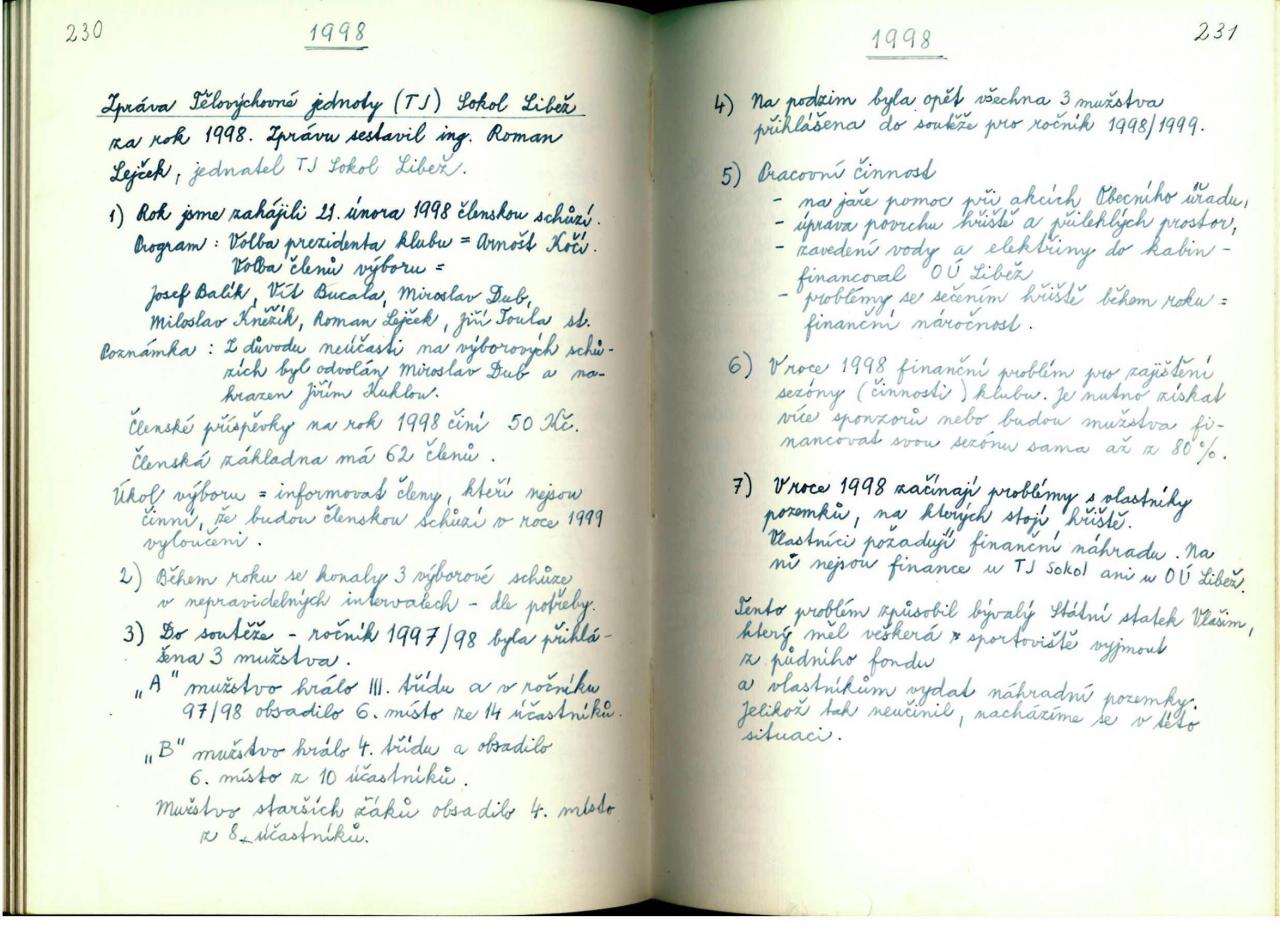 230
1998
Zpráva Tělovýchovné jednoty (TJ) Sokol Libež
za rok 1998. Zprávu sestavil ing. Roman
Lejček, jednatel TJ Sokol Libež.
1) Rok jsme zahájili 21. února 1998 členskou schůzí.
Program : Volba prezidenta klubu = Arnošt Kočí.
Volba členů výboru =
Josef Balík, Vít Bucala, Miroslav Dub,
Miloslav Kněžík, Roman Lejček, Jiří Toula st.
Poznámka : Z důvodu neúčasti na výborových schů-
zích byl odvolán Miroslav Dub a na-
hrazen Jiřím Kuklou.
Členské příspěvky na rok 1998 činí 50 Kč.
Členská základna má 62 členů.
Úkol výboru = informovat členy, kteří nejsou
činní, že budou členskou schůzí v roce 1999
vyloučeni.
2) Během roku se konaly 3 výborové schůze
v nepravidelných intervalech - dle potřeby.
3) Do soutěže - ročník 1997/98 byla přihlá-
šena 3 mužstva.
„A" mužstvo hrálo III. třídu a v ročníku
97/98 obsadilo 6. místo ze 14 účastníků.
„B" mužstvo hrálo 4. třídu a obsadilo
6. místo z 10 účastníků.
Mužstvo starších žáků obsadilo 4. místo
z 8 účastníků.
1998
231
4) Na podzim byla opět všechna 3 mužstva
přihlášena do soutěže pro ročník 1998/1999.
5) Pracovní činnost
- na jaře pomoc při akcích Obecního úřadu,
- úprava povrchu hřiště a přilehlých prostor,
- zavedení vody a elektřiny do kabin -
financoval OÚ Libež
- problémy se sečením hřiště během roku =
finanční náročnost.
6) V roce 1998 finanční problém pro zajištění
sezóny (činnosti) klubu. Je nutno získat
více sponzorů nebo budou mužstva fi-
nancovat svou sezónu sama až z 80%.
7) V roce 1998 začínají problémy s vlastníky
pozemků, na kterých stojí hřiště.
Vlastníci požadují finanční náhradu. Na
ni nejsou finance u TJ Sokol ani u OÚ Libež.
Tento problém způsobil bývalý Státní statek Vlašim,
který měl veškerá sportoviště vyjmout
z půdního fondu
a vlastníkům vydat náhradní pozemky.
Jelikož tak neučinil, nacházíme se v této
situaci.